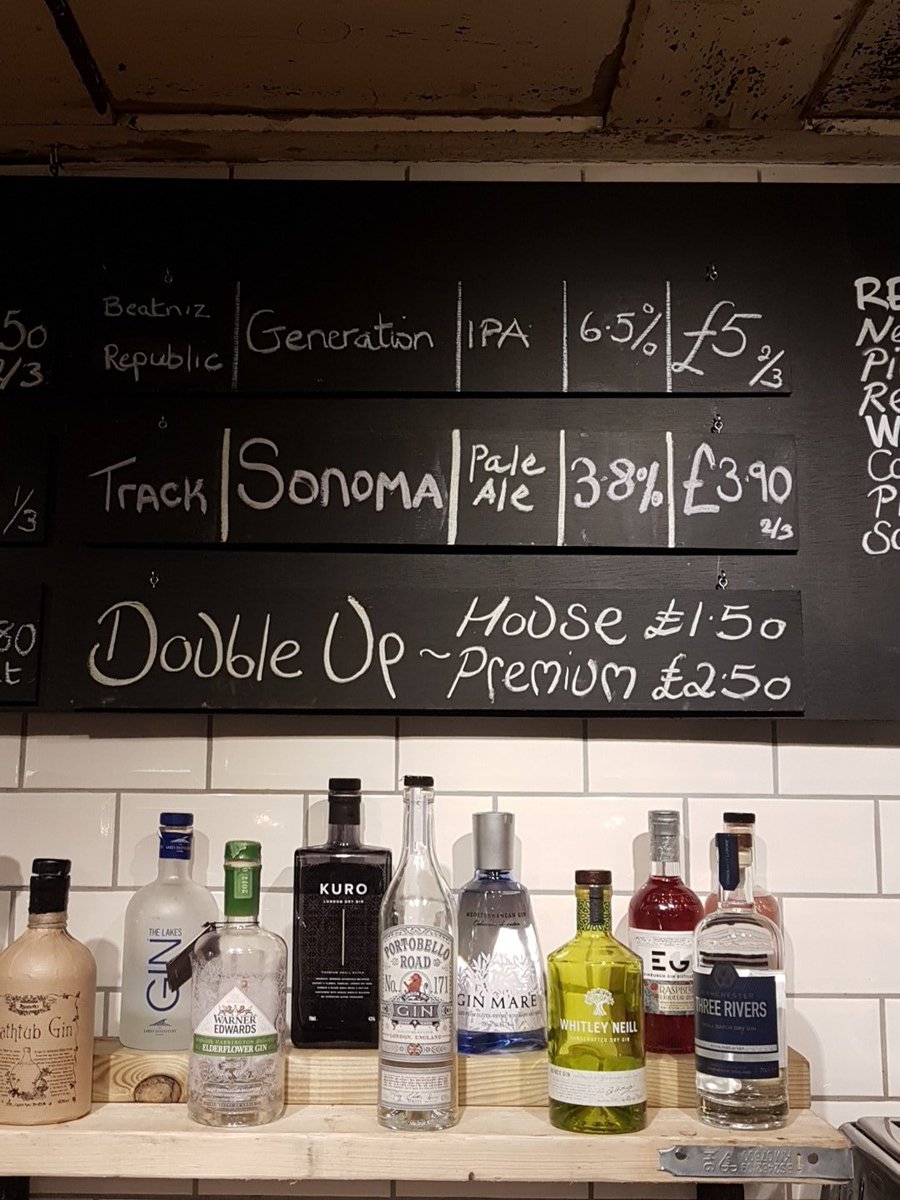 50
2/3
Beatniz
Republic
Generation
IPA
6.5%
£5
2/3
1/3
Track
Sonoma
Pale
Ale
3.8%
£3.90
2/3
80
Double Up ~
House £1.50
Premium £2.50
RE
Ne
Pi
Re
W
Co
Pi
So
KURO
LONDON DRY GIN
THE LAKES
GIN
WARNER
EDWARDS
ELDERFLOWER GIN
PORTOBELLO
ROAD
No. 171
GIN
LONDON, ENGLAND
MEDITERRANEAN GIN
GIN MARE
WHITLEY NEILL
HANDCRAFTED DRY GIN
EG
EDINBURGH GIN
RASPBERRY
MANCHESTER
THREE RIVERS
athtub Gin